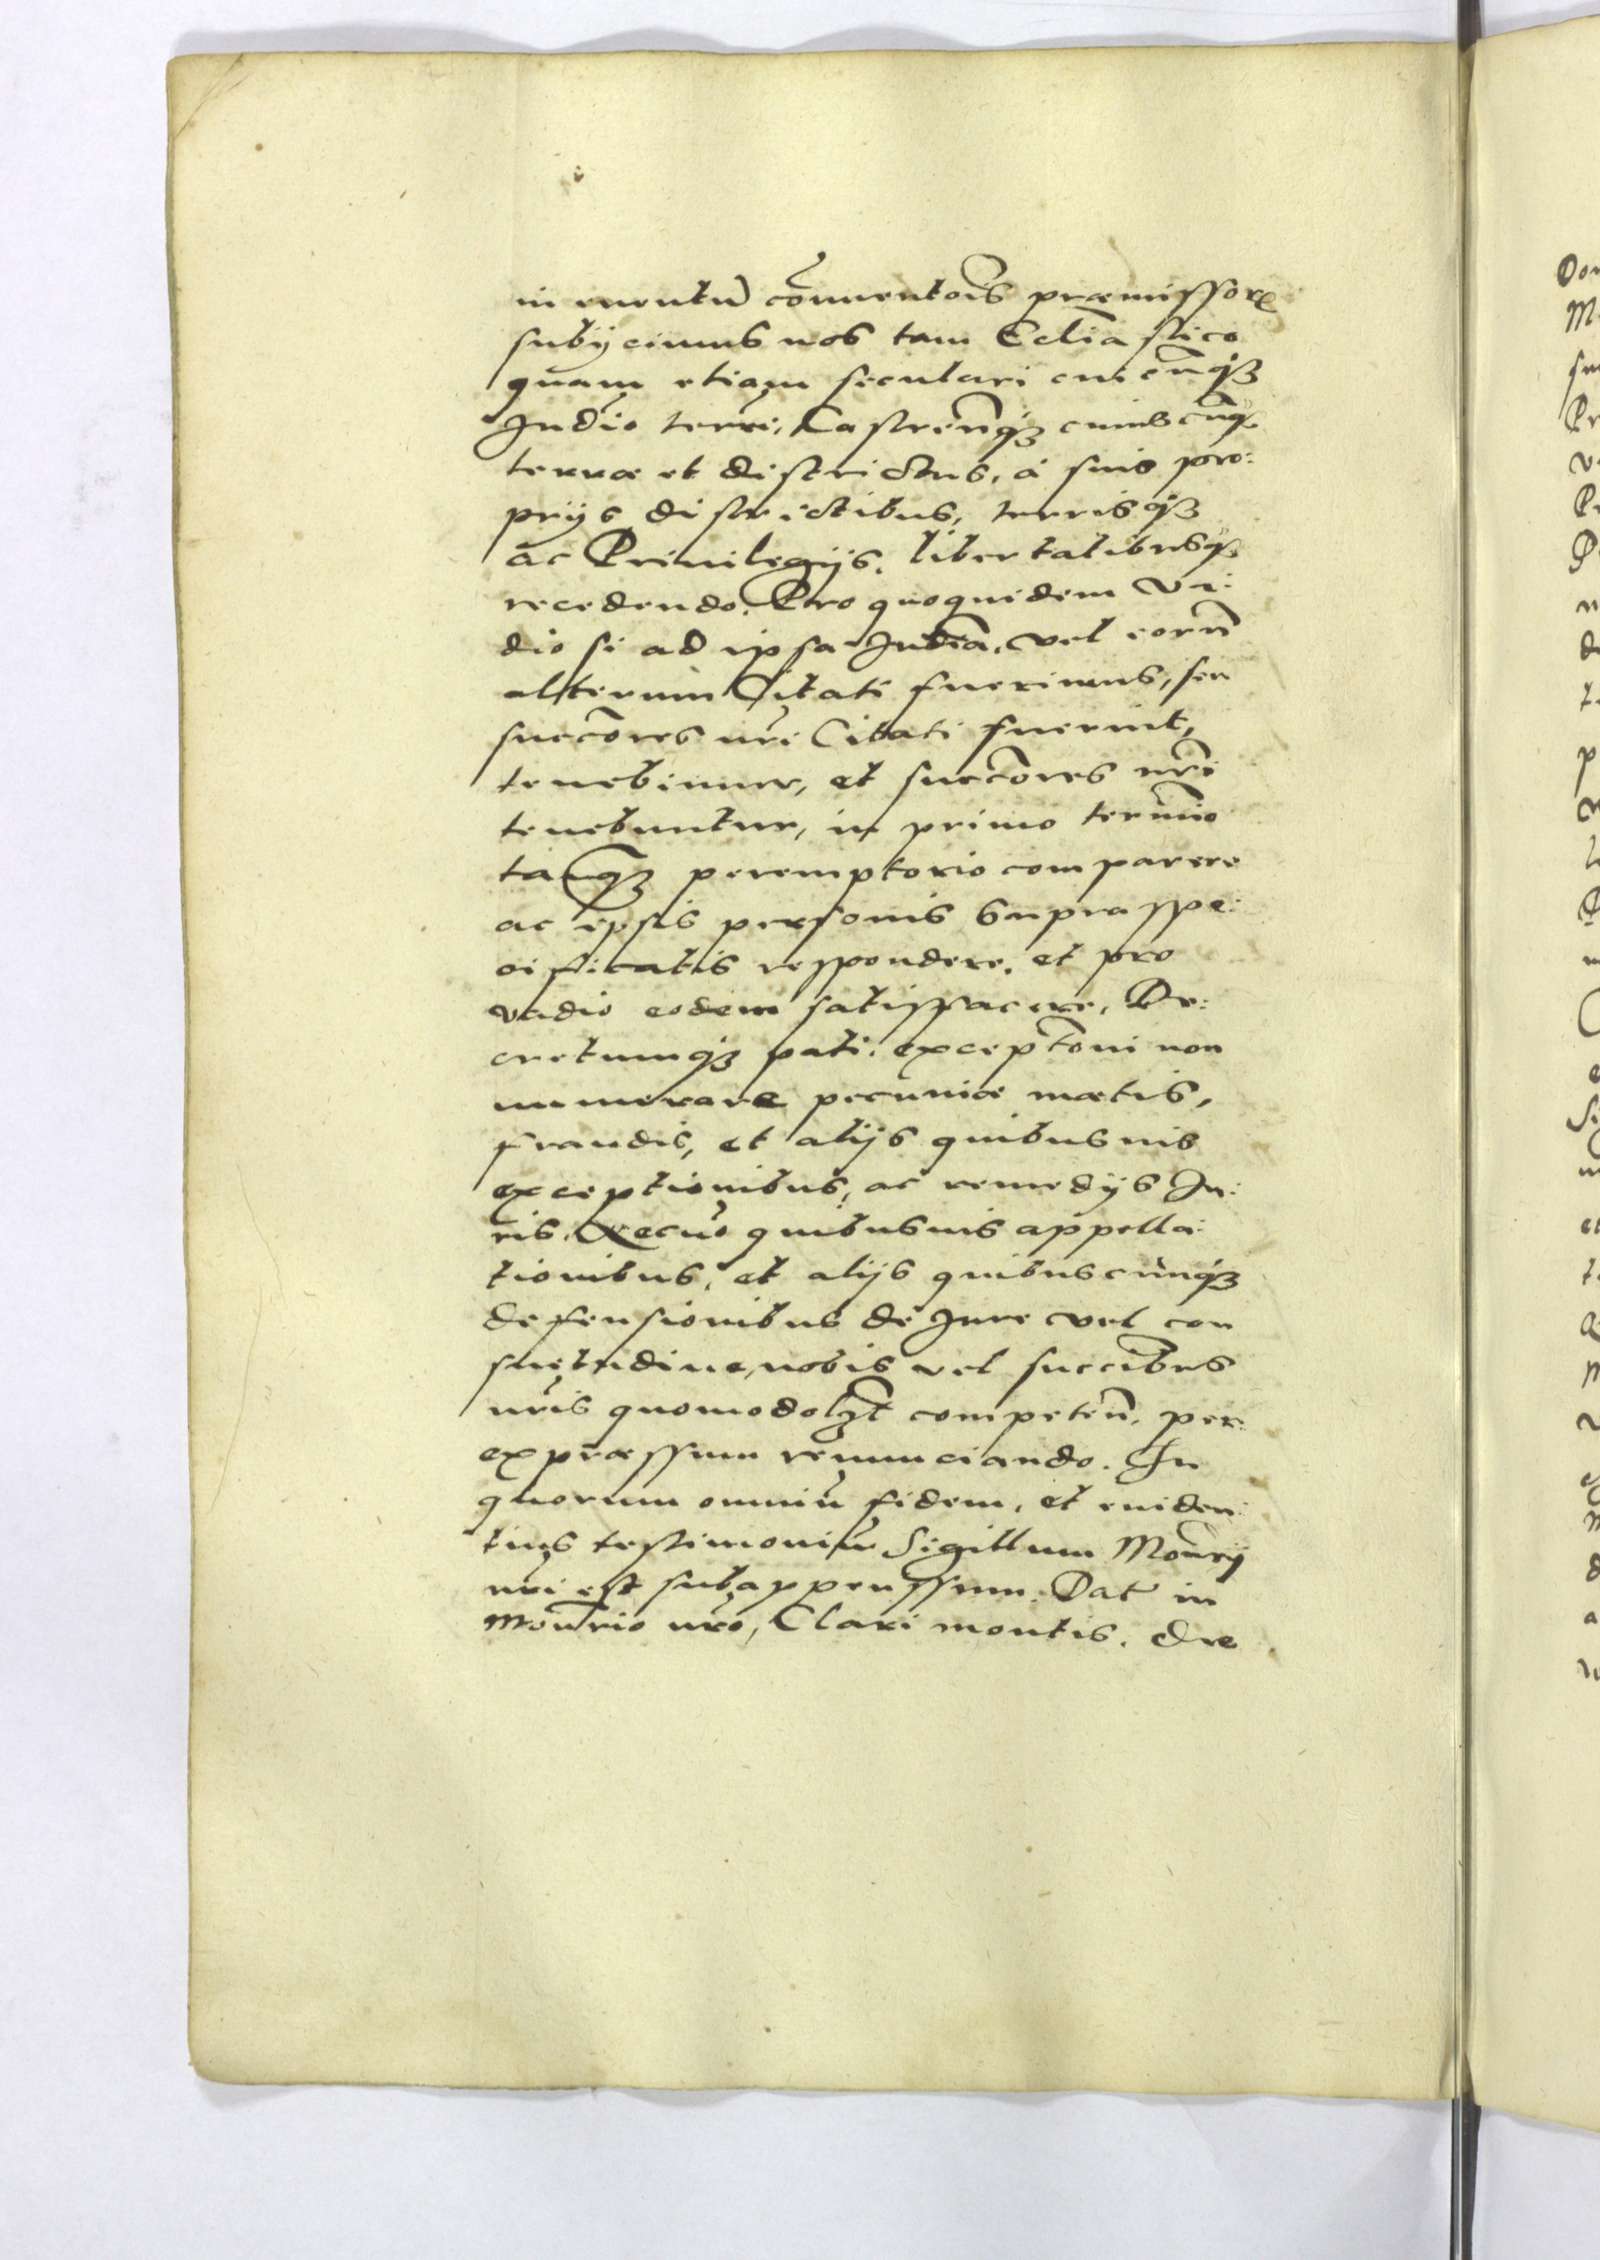 in euentũ cõuentõis præmissorꝝ
subijcimus nos tam Ecliãstico
quam etiam seculari cuicũqꝫ
Iudĩo terrĩ, Castrẽnqꝫ cuiuscũqꝫ
terræ et districtus, à suis pro:
prijs districtibus, terrisqꝫ
ac Priuilegijs, libertatibusqꝫ
recedendo. Pro quoquidem va:
dio si ad ipsa Iudĩa, vel eorũ
alterum Citati fuerimus, seu
succõres nr̃i Citati fuerint,
tenebimur, et succõres nr̃i
tenebuntur, in primo termĩo
tanqꝫ peremptorio comparere
ac ipsis personis supra spe:
cificatis respondere, et pro
vadio eodem satisfacere, De:
cretumqꝫ pati: exceptõni non
numeratæ pecuniæ metus,
fraudis, et alijs quibusuis
exceptionibus, ac remedijs Iu:
ris. Necnõ quibusuis appella:
tionibus, et alijs quibuscunqꝫ
defensionibus de Iure vel con
suetudine, nobis vel succĩbus
nr̃is quomodolꝫt competeñ, per
expræssum renunciando. In
quorum omniũ fidem, et euiden:
tius testimoniũ Sigillum Monr̃ij
nr̃i est subappenssum. Dat̃ in
Monr̃io nr̃o, Clari montis. Die